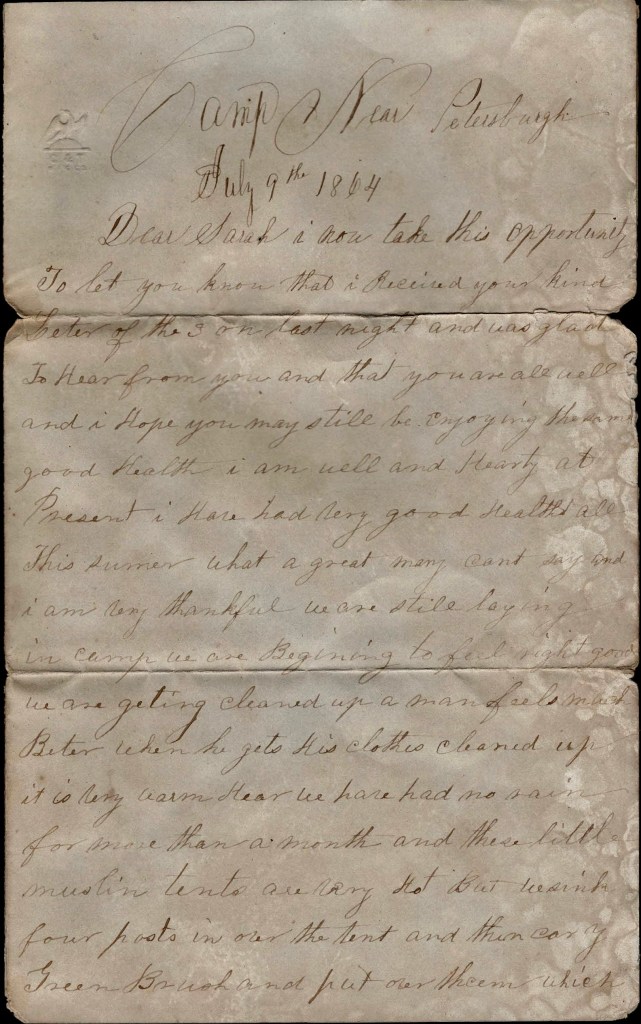 Camp Near Petersburgh
July 9th 1864
Dear Sarah i now take this opportunity
To let you know that i Received your kind
Leter of the 3 on last night and was glad
To Hear from you and that you are all well
and i Hope you may still be enjoying the same
good Health i am well and Hearty at
Present i Have had very good Health all
This sumer what a great many cant say and
i am very thankful we are still laying
in camp we are Begining to feel right good
we are geting cleaned up a man feels much
Beter when he gets His clothes cleaned up
it is very warm Hear we have had no rain
for more than a month and these little
muslin tents are very Hot But we sink
four posts in over the tent and then cary
Green Brush and put over them which